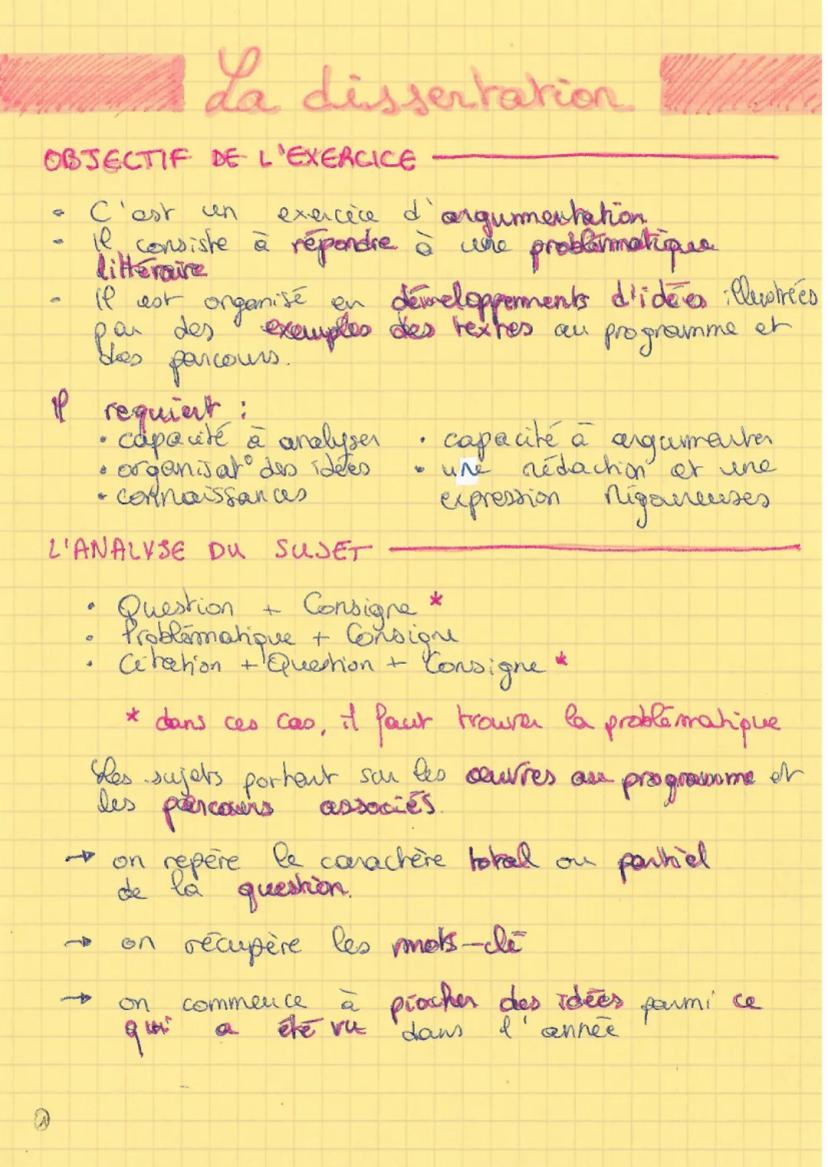 La dissertation
OBJECTIF DE L'EXERCICE
- C'est un exercice d'argumentation
- Il consiste à répondre à une problématique
littéraire
- Il est organisé en développements d'idées illustrées
par des exemples des textes au programme et
des parcours.
Il requiert :
• capacité à analyser
• organisat° des idées
• connaissances
• capacité à argumenter
• une rédaction et une
expression rigoureuses
L'ANALYSE DU SUJET
• Question + Consigne *
• Problématique + Consigne
• Citation + Question + Consigne *
* dans ces cas, il faut trouver la problématique
Les sujets portent sur les œuvres au programme et
les parcours associés.
→ on repère le caractère total ou partiel
de la question.
→ on récupère les mots-clé
→ on commence à piocher des idées parmi ce
qui a été vu dans l'année
1